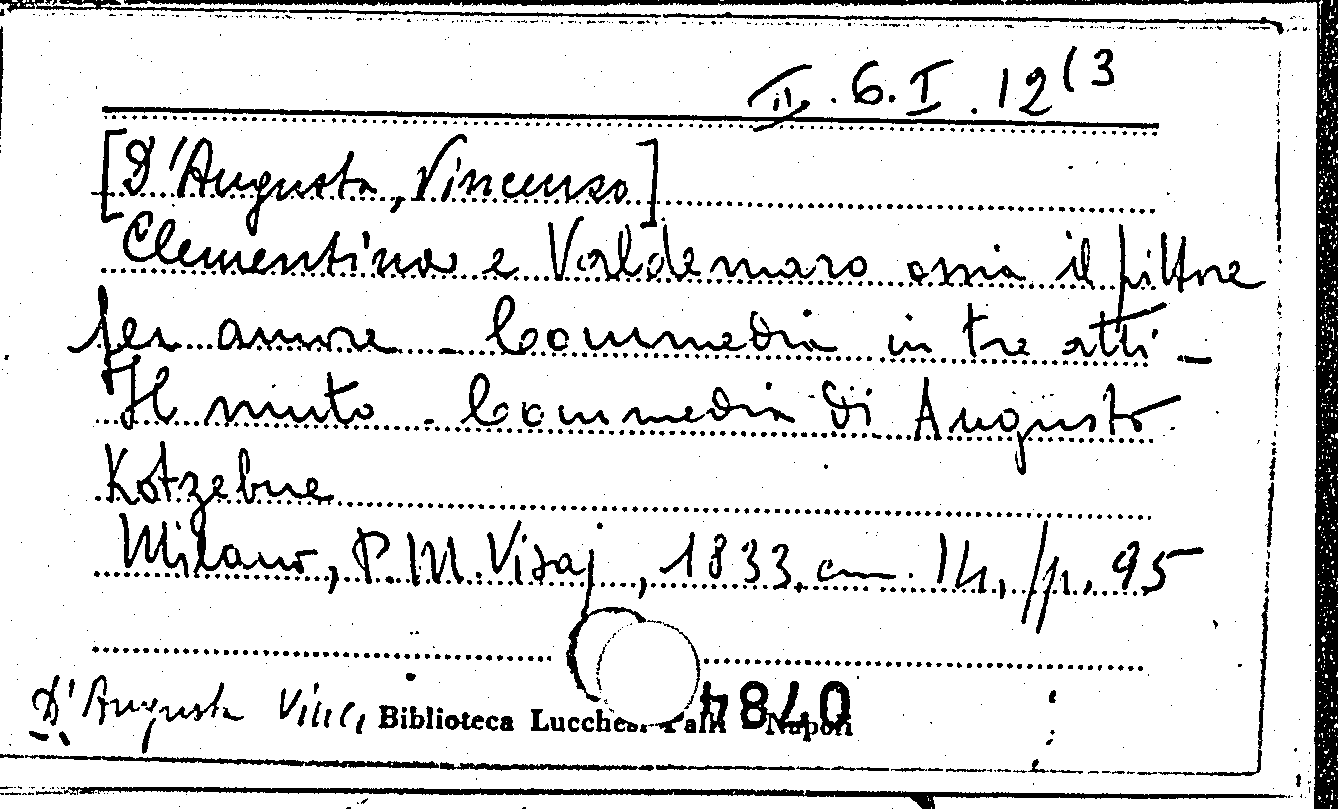 II.6.I.12(3
[D'Augusta, Vincenzo]
Clementina e Valdemaro ossia il pittore
per amore - Commedia in tre atti -
Il muto - Commedia di Augusto
Kotzebue
Milano, P.M. Visaj, 1833. cm. 14, pp. 95
D'Augusta Vinc. Biblioteca Lucchesi Palli Napoli